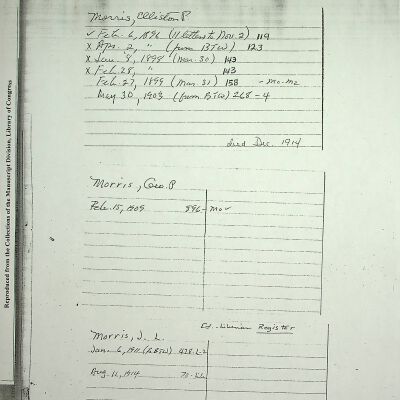 Reproduced from the Collections of the Manuscript Division, Library of Congress
Morris, Elliston P
✓ Feb. 6, 1896 (11 letters to Nov. 2) 119
X Apr. 2, " (from BTW) 123
X Jan. 8, 1898 (Mar. 30) 143
X Feb. 28, " 143
Feb. 27, 1899 (Mar. 31) 158 - mo-mz
May 30, 1903 (from BTW) 268-4
died Dec. 1914
Morris, Geo. P
Feb. 15, 1909 896- mov
Ed. - Liberian Register
Morris, J. L.
Jan. 6, 1911 (to BTW) 428.L-2
Aug. 11, 1914